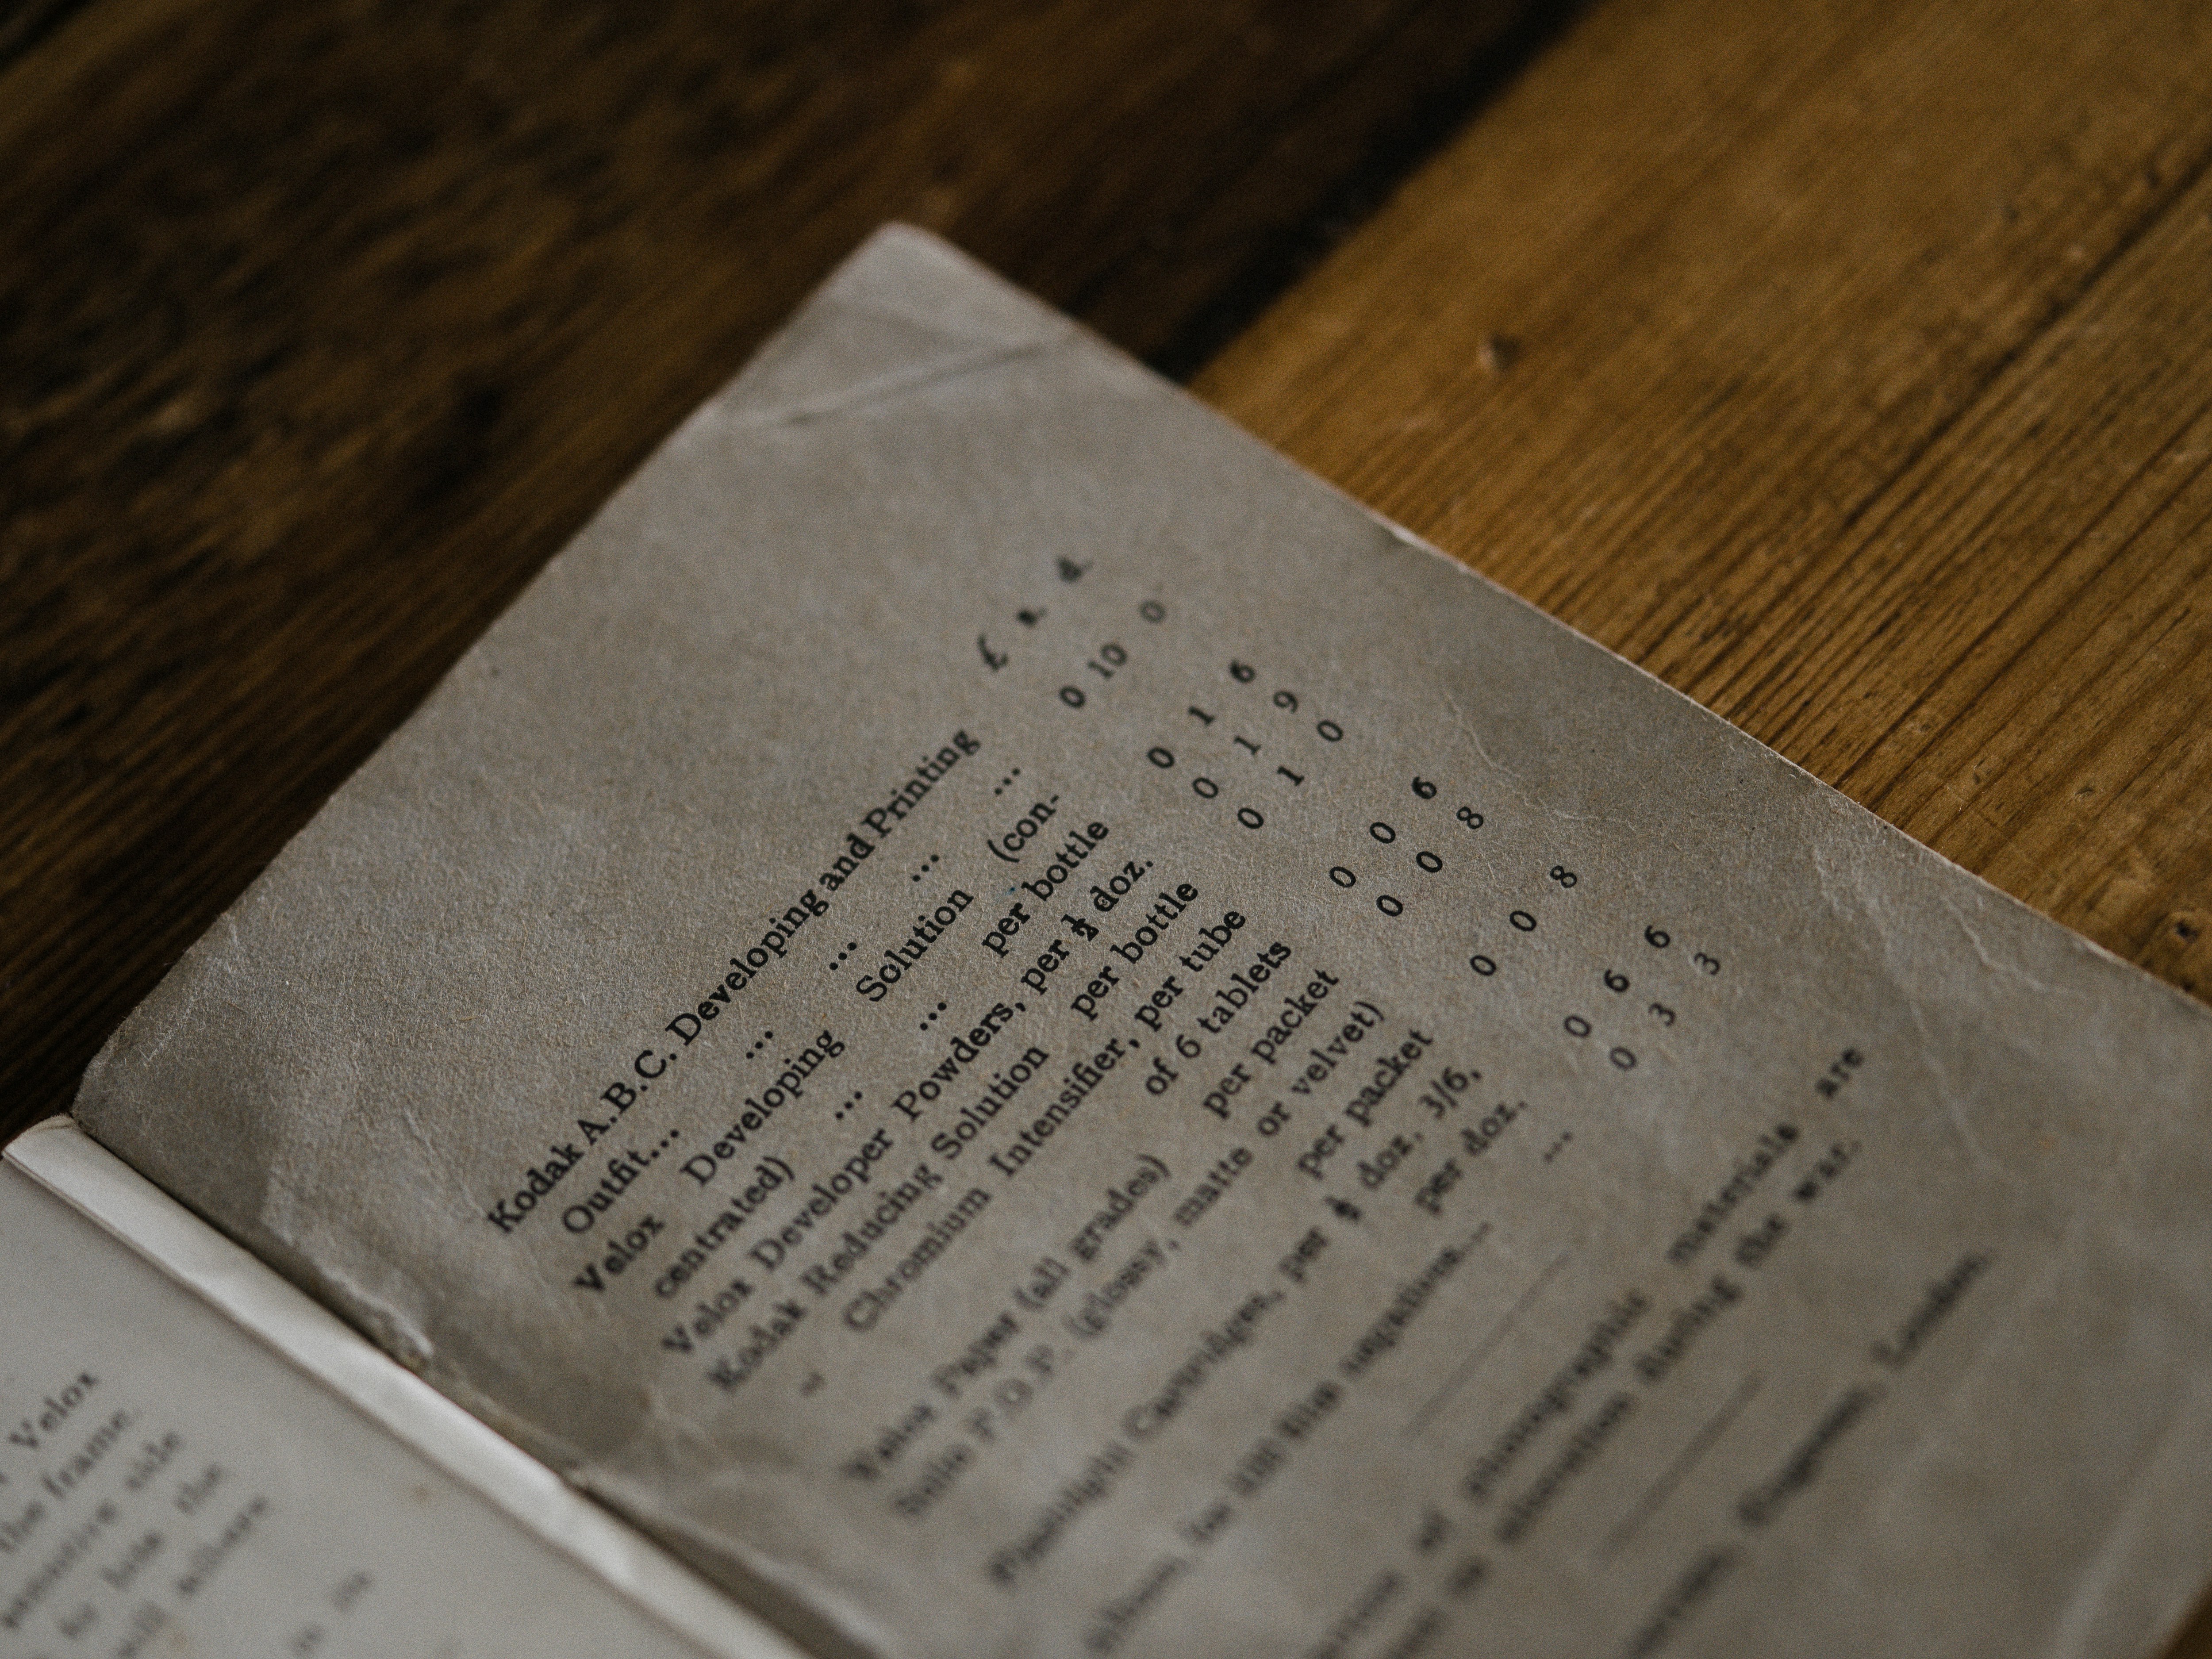 Velox
the frame.
side
to lose the
will allow
is in
£ s. d.
Kodak A.B.C. Developing and Printing
Outfit... ... ... ... ... 0 10 0
Velox Developing Solution (con-
centrated) ... ... per bottle 0 1 6
Velox Developer Powders, per ½ doz. 0 1 9
Kodak Reducing Solution per bottle 0 1 0
„ Chromium Intensifier, per tube
of 6 tablets 0 0 6
Velox Paper (all grades) per packet 0 0 8
Solio P.O.P. (glossy, matte or velvet)
per packet 0 0 8
Flashlight Cartridges, per ½ doz. 3/6,
per doz. 0 6 6
film ... 0 3 3
of photographic materials are
to alteration during the war.
London.